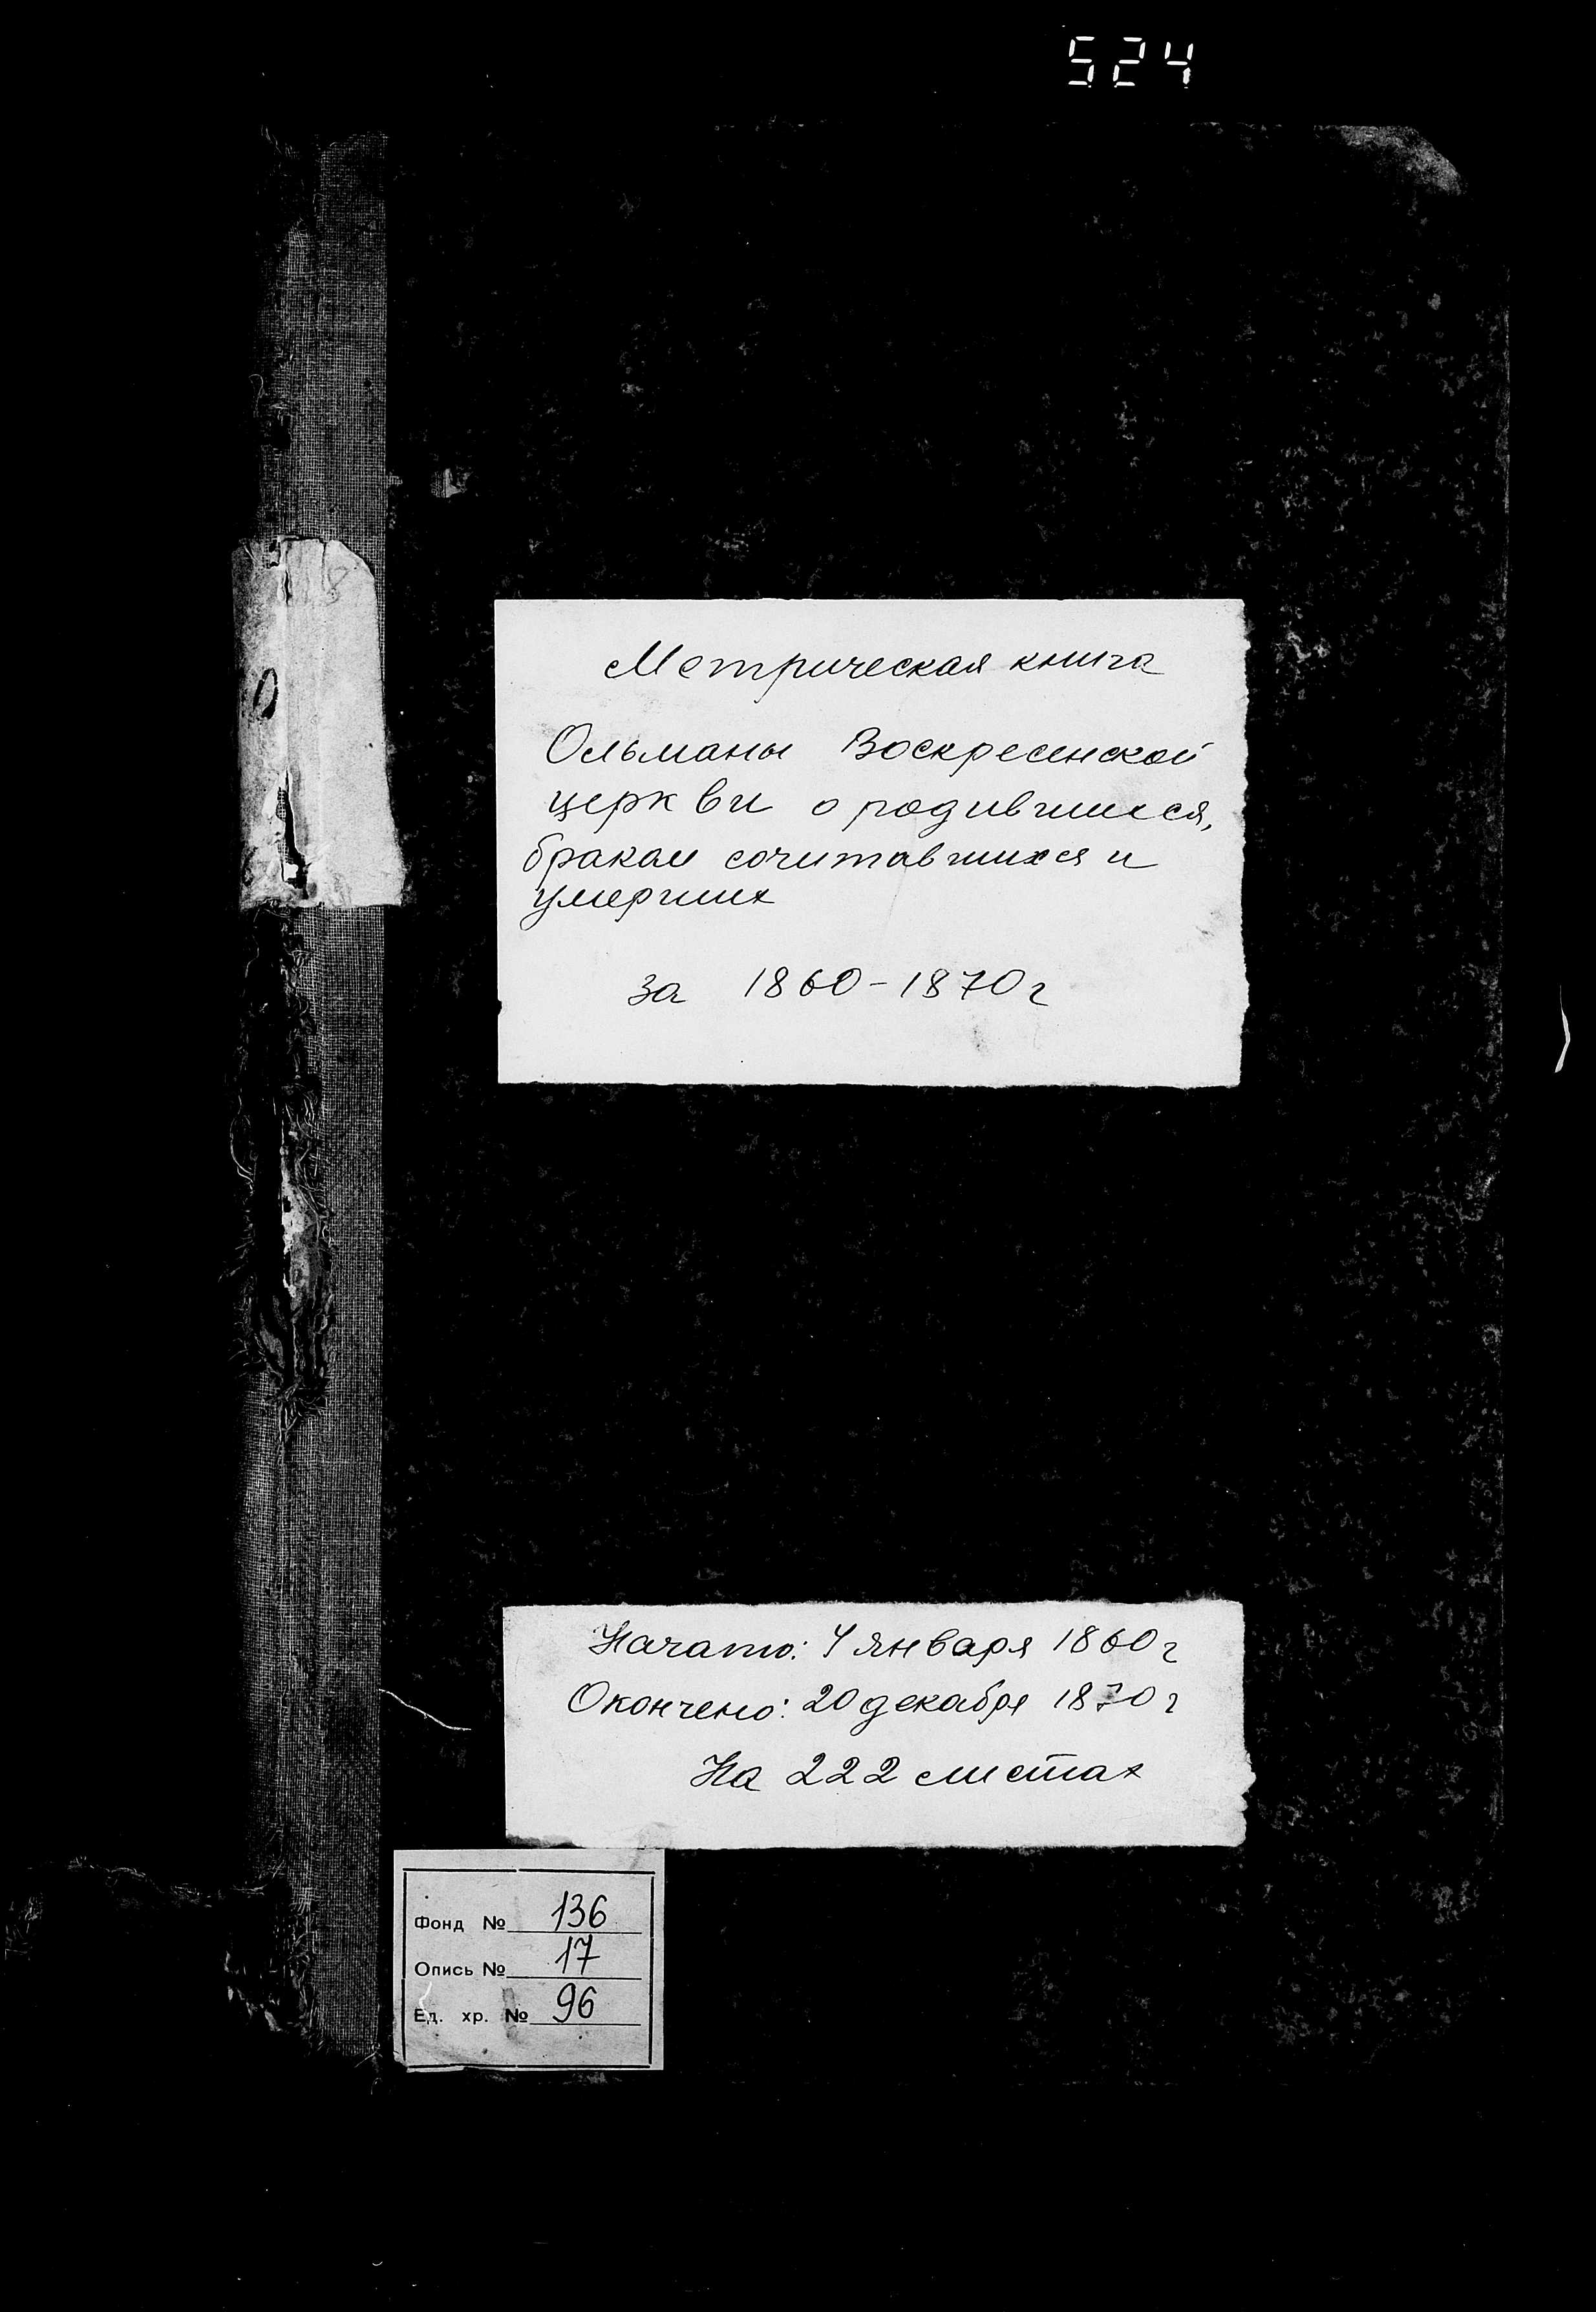 524
Метрическая книга
Ольманы Воскресенской
церкви о родившихся,
браком сочитавшихся и
умерших
за 1860-1870г
Начато: 4 января 1860г
Окончено: 20 декабря 1870г
На 222 листах
Фонд № 136
Опись № 17
Ед. хр. № 96